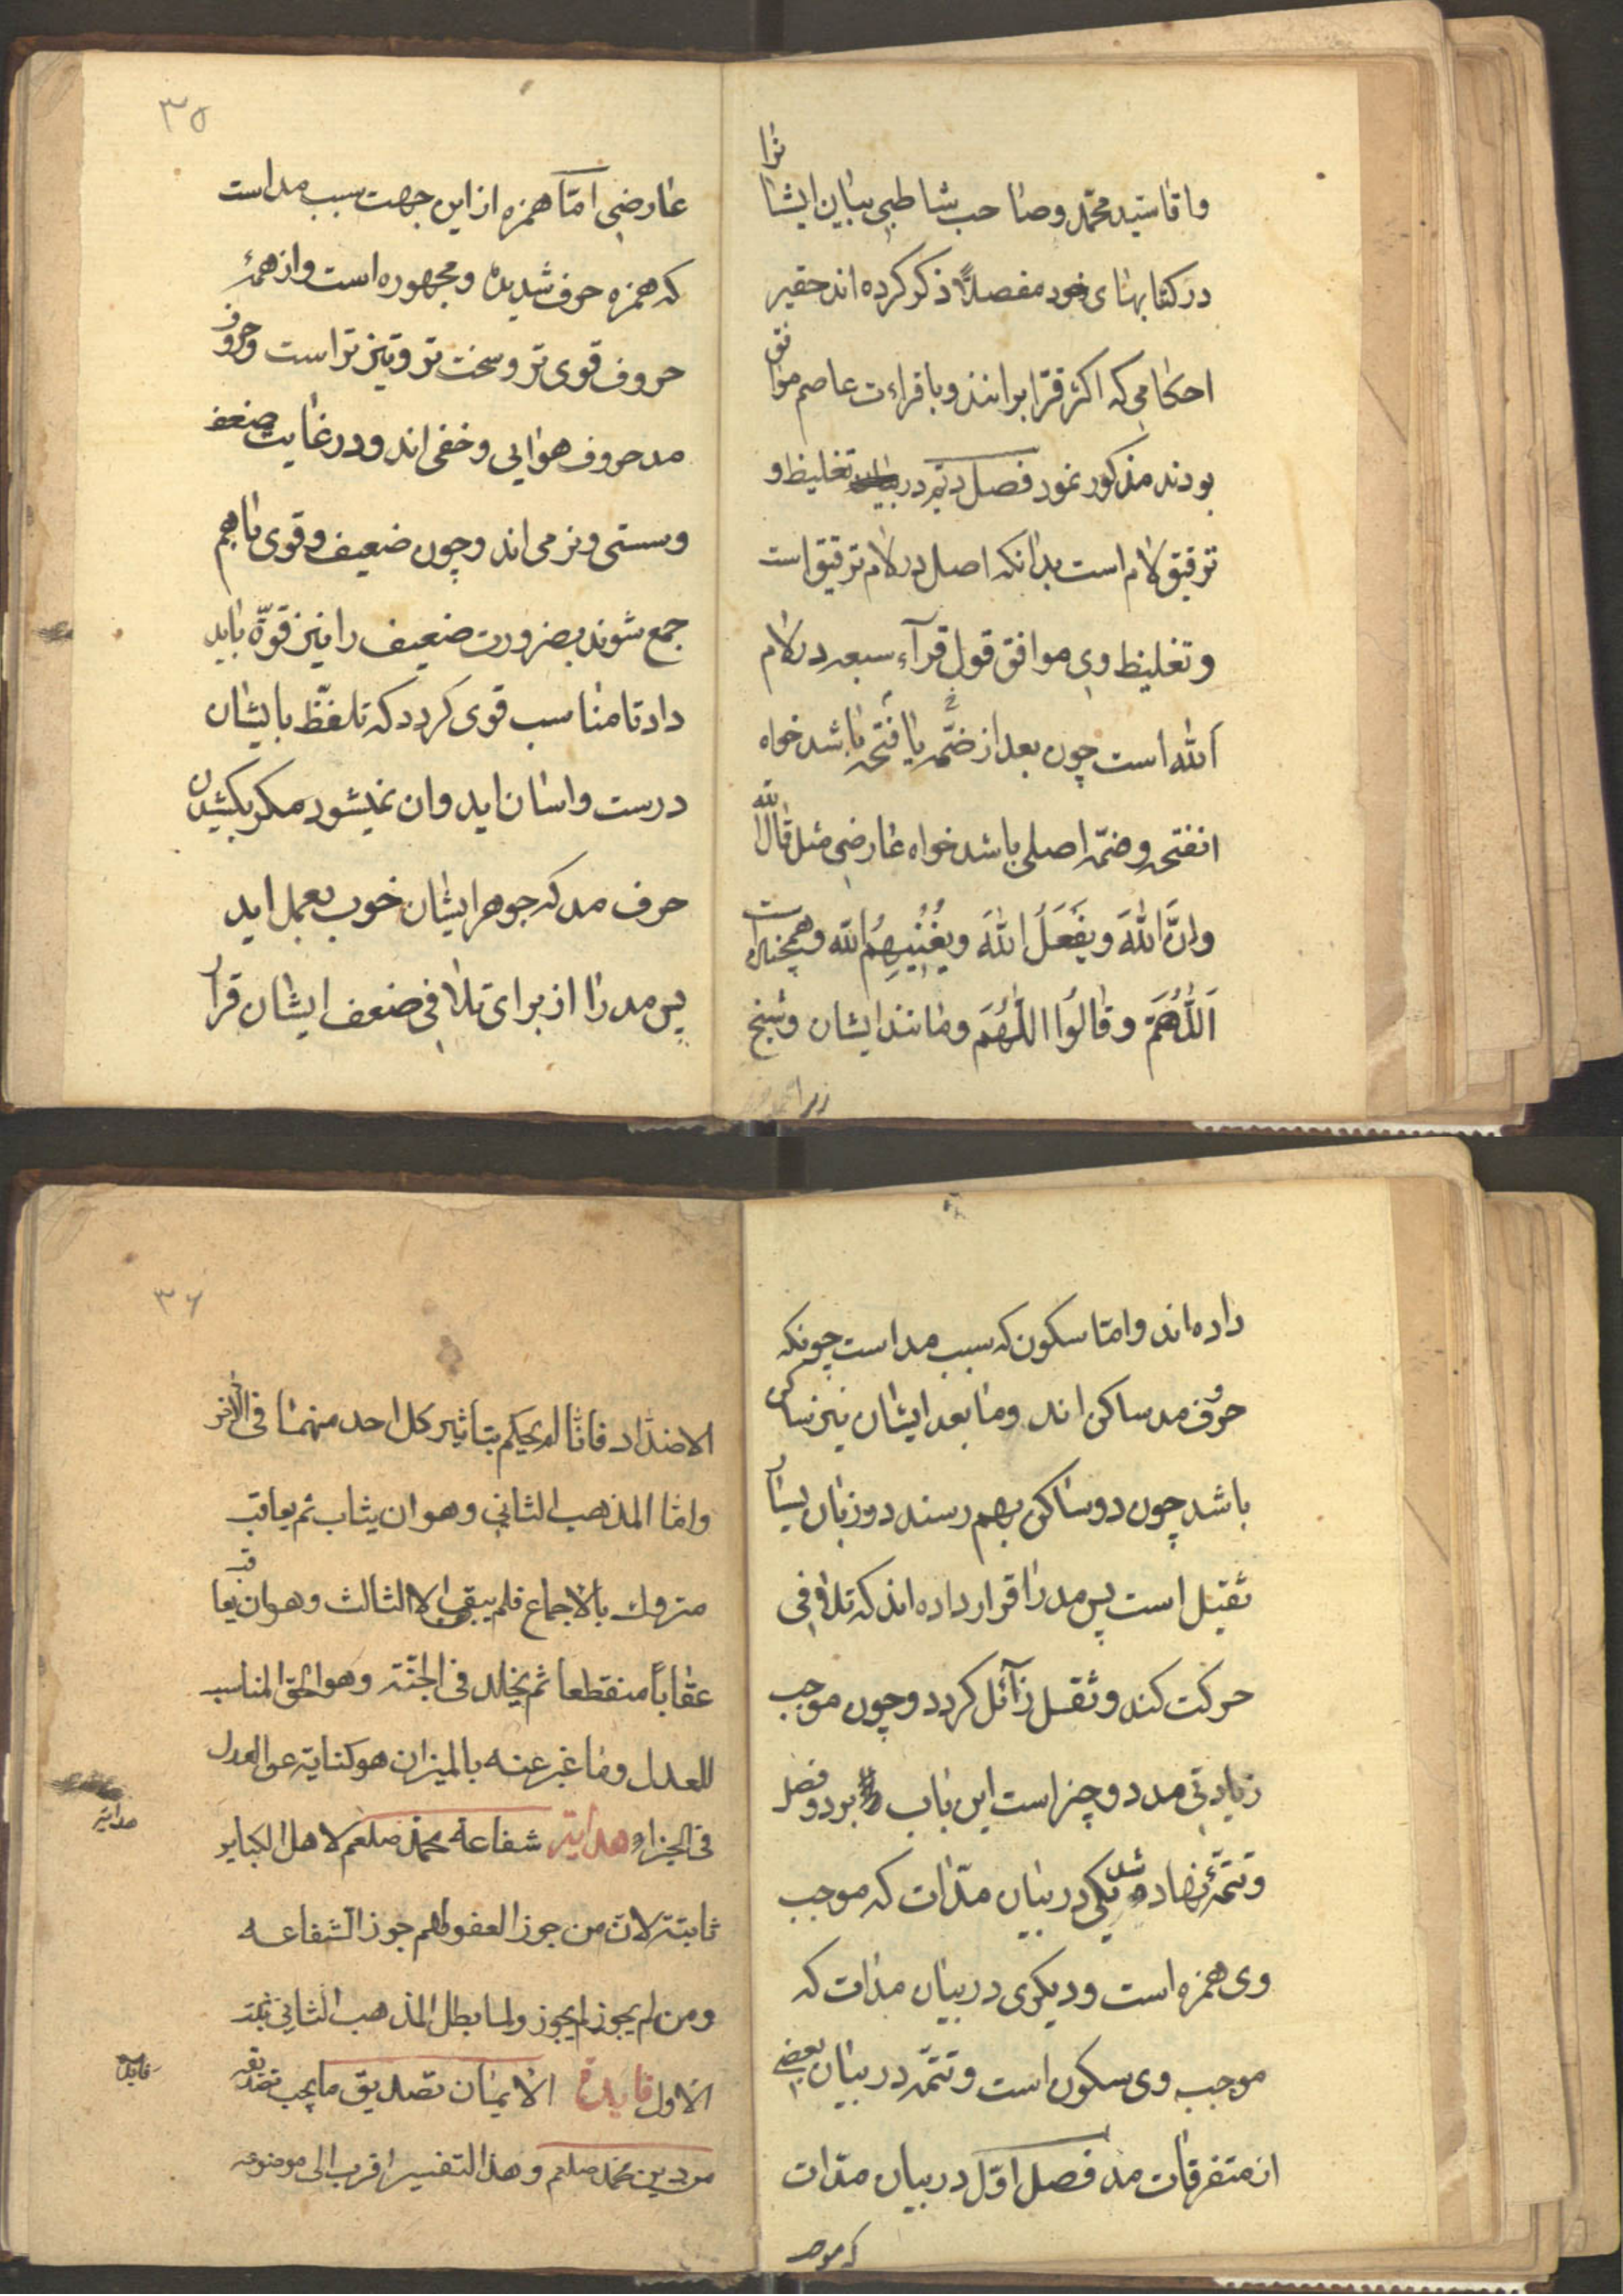 واما سید محمد و صاحب شاطبی ببیان ایشانرا
در کتابهای خود مفصلاً ذکر کرده اند حقیر
احکامی که اکثر قرّا برانند و با قراءت عاصم موافق
بودند مذکور نمود فصل دیم در تغلیظ و
ترقیق لام است بدانکه اصل در لام ترقیق است
و تغلیظ وی موافق قول قرآء سبعه در لام
اَلله است چون بعد از ضمّه یا فتحه باشد خواه
انفتحه و ضمّه اصلی باشد خواه عارضی مثل قال الله
وانَّ اللهَ ویَفعَلُ اللهَ ویُغْنِیهِمُ الله وهمچنین است
اَللّٰهُمَّ وقالُوا اللّٰهُمَ و مانند ایشان و شیخ
۳۵
عارضی امّا همزه از این جهت سبب مد است
که همزه حرف شدیده و مجهوره است و از همهٔ
حروف قوی تر و سخت تر و تیز تر است و حروف
مد حروف هوایی و خفی اند و در غایت ضعف
و سستی و نرمی اند و چون ضعیف و قوی باهم
جمع شوند بضرورت ضعیف را نیز قوّة باید
داد تا مناسب قوی کردد که تلفّظ بایشان
درست واسان اید وان نمیشود مکر بکشیدن
حرف مد که جوهر ایشان خوب بعمل اید
پس مد را از برای تلافی ضعف ایشان قرار
داده اند و امّا سکون که سبب مد است چونکه
حروف مد ساکن اند و ما بعد ایشان نیز ساکن
باشد چون دو ساکن بهم رسند در زبان بسیار
ثقیل است پس مد را قرار داده اند که تلافی
حرکت کند و ثقل زآئل کردد و چون موجب
زیادتی مد دو چیز است این باب بر دو فصل
و تتمّهٔ نهاده شد یکی در بیان مدّات که موجب
وی همزه است و دیکری در بیان مدات که
موجب وی سکون است و تتمّه در بیان بعضی
از متفرقات مد فصل اوّل در بیان مدّات
که موجب
۳۶
الاضداد فانا لم یحکم بتاثیر کل احد منهما فی الاخر
واما المذهب الثانی وهو ان یثاب ثم یعاقب
متروک بالاجماع فلم یبقی الا الثالث وهو ان یعاقب
عقاباً منقطعا ثم یخلد فی الجنّة وهو الحق المناسب
للعدل وما عبر عنه بالمیزان هو کنایة عن العدل
فی الجزاء هدایة شفاعة محمد صلعم لاهل الکبایر
هدایة
ثابتة لان من جوز العفو لهم جوز الشفاعه
ومن لم یجوز لم یجوز ولما بطل المذهب الثانی
الاول فایدة الایمان تصدیق ما یجب تصدیقه
فایدة
من دین محمد صلعم وهذا التفسیر اقرب الی موضوعه